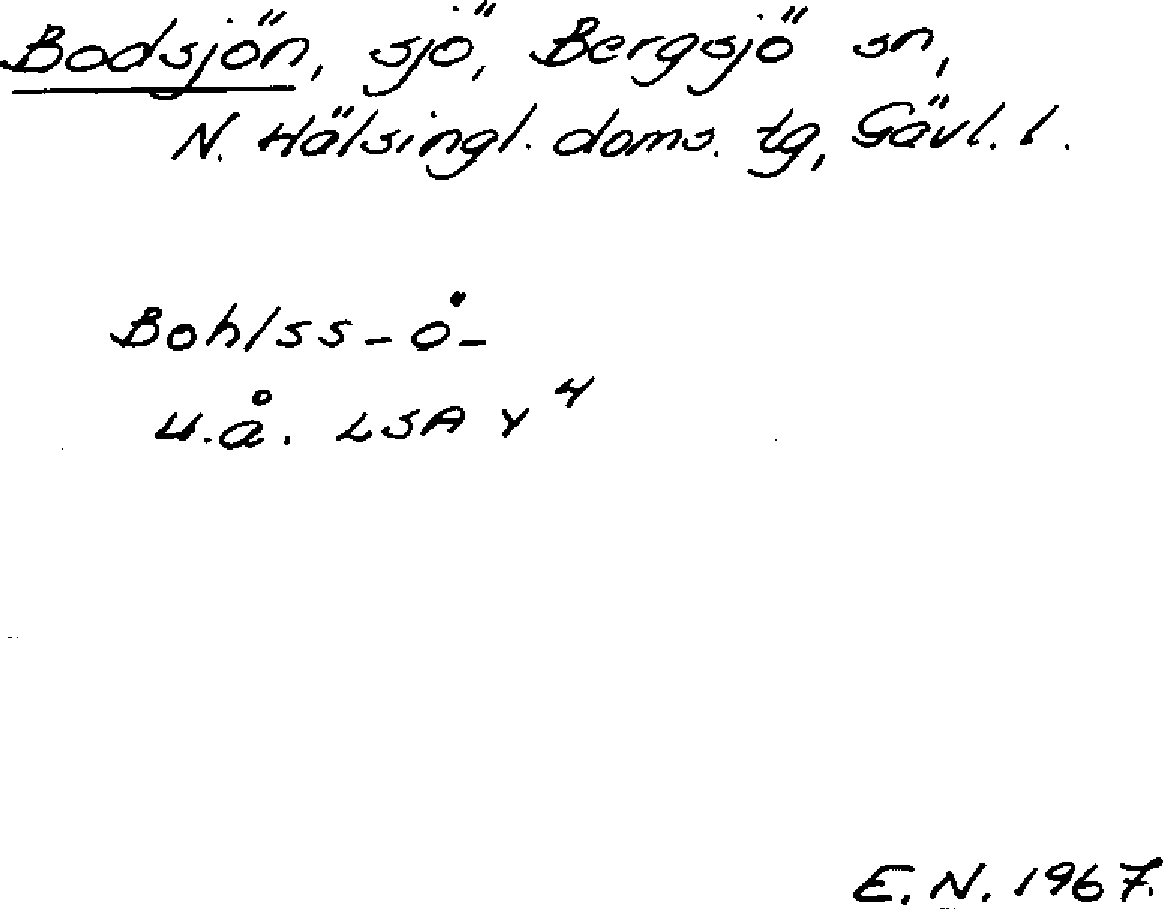 Bodsjön, sjö, Bergsjö sn,
N. Hälsingl. doms. tg, Gävl. l.
Bohlss-ö-
u.å. LSA Y 4
E.N. 1967.